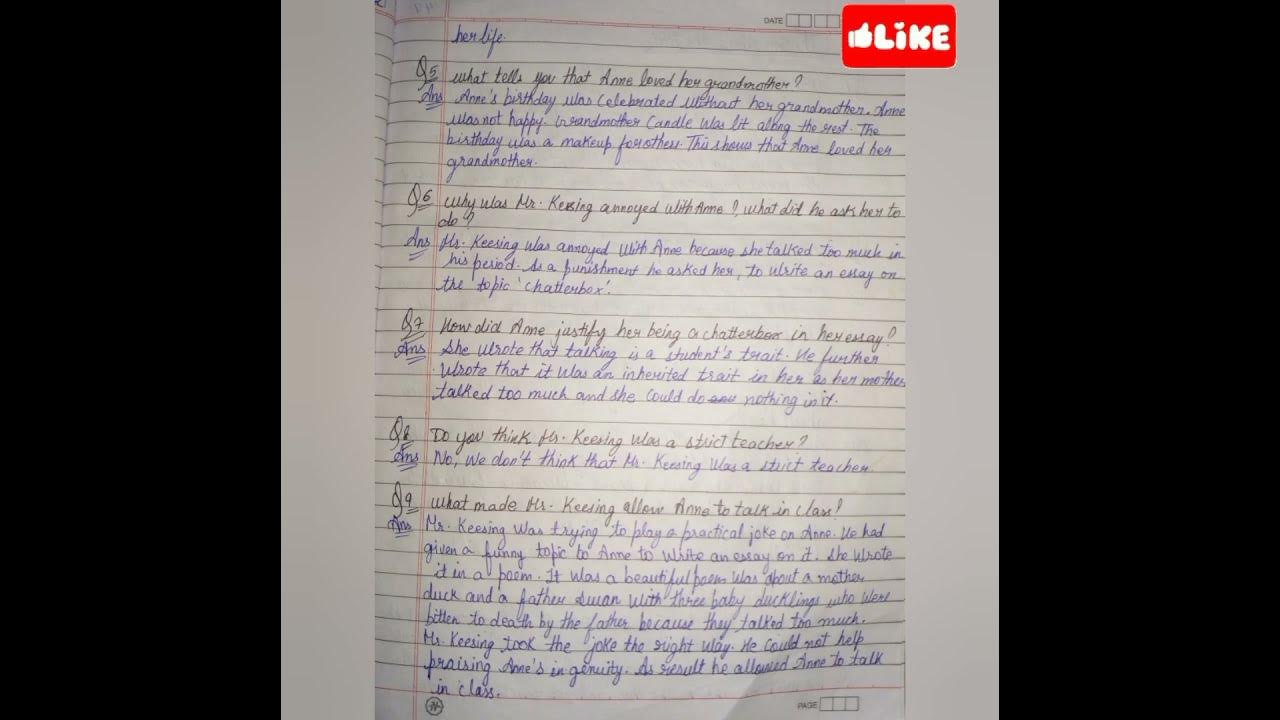 DATE
LIKE
her life.
Q5 what tells you that Anne loved her grandmother?
Ans Anne's birthday was celebrated without her grandmother. Anne
was not happy. Grandmother Candle was lit along the rest. The
birthday was a makeup forothers. This shows that Anne loved her
grandmother.
Q6 Why was Mr. Keesing annoyed with Anne?, what did he ask her to
do?
Ans Mr. Keesing was annoyed with Anne because she talked too much in
his period. As a punishment he asked her, to write an essay on
the topic 'chatterbox'.
Q7 How did Anne justify her being a chatterbox in her essay?
Ans She wrote that talking is a student's trait. He further
wrote that it was an inherited trait in her as her mother
talked too much and she could do nothing in it.
Q8 Do you think Mr. Keesing was a strict teacher?
Ans No, we don't think that Mr. Keesing was a strict teacher.
Q9 what made Mr. Keesing allow Anne to talk in class?
Ans Mr. Keesing was trying to play a practical joke on Anne. He had
given a funny topic to Anne to write an essay on it. She wrote
it in a poem. It was a beautiful poem was about a mother
duck and a father swan with three baby ducklings who were
bitten to death by the father because they talked too much.
Mr. Keesing took the joke the right way. He could not help
praising Anne's in genuity. As result he allowed Anne to talk
in class.
PAGE